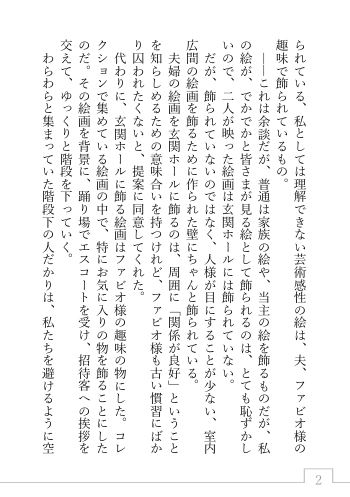 られている、私としては理解できない芸術感性の絵は、夫、ファビオ様の
趣味で飾られているもの。
――これは余談だが、普通は家族の絵や、当主の絵を飾るものだが、私
の絵が、でかでかと皆さまが見る絵として飾られるのは、とても恥ずかし
いので、二人が映った絵画は玄関ホールには飾られていない。
だが、飾られていないのではなく、人様が目にすることが少ない、室内
広間の絵画を飾るために作られた壁にちゃんと飾られている。
夫婦の絵画を玄関ホールに飾るのは、周囲に「関係が良好」ということ
を知らしめるための意味合いを持つけれど、ファビオ様も古い慣習にばか
り囚われたくないと、提案に同意してくれた。
代わりに、玄関ホールに飾る絵画はファビオ様の趣味の物にした。コレ
クションで集めている絵画の中で、特にお気に入りの物を飾ることにした
のだ。その絵画を背景に、踊り場でエスコートを受け、招待客への挨拶を
交えて、ゆっくりと階段を下っていく。
わらわらと集まっていた階段下の人だかりは、私たちを避けるように空
2